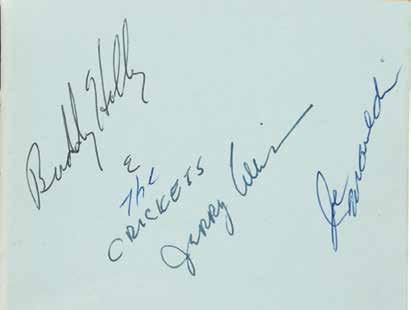 Buddy Holly
&
The
CRICKETS
Jerry
Joe Mauldin